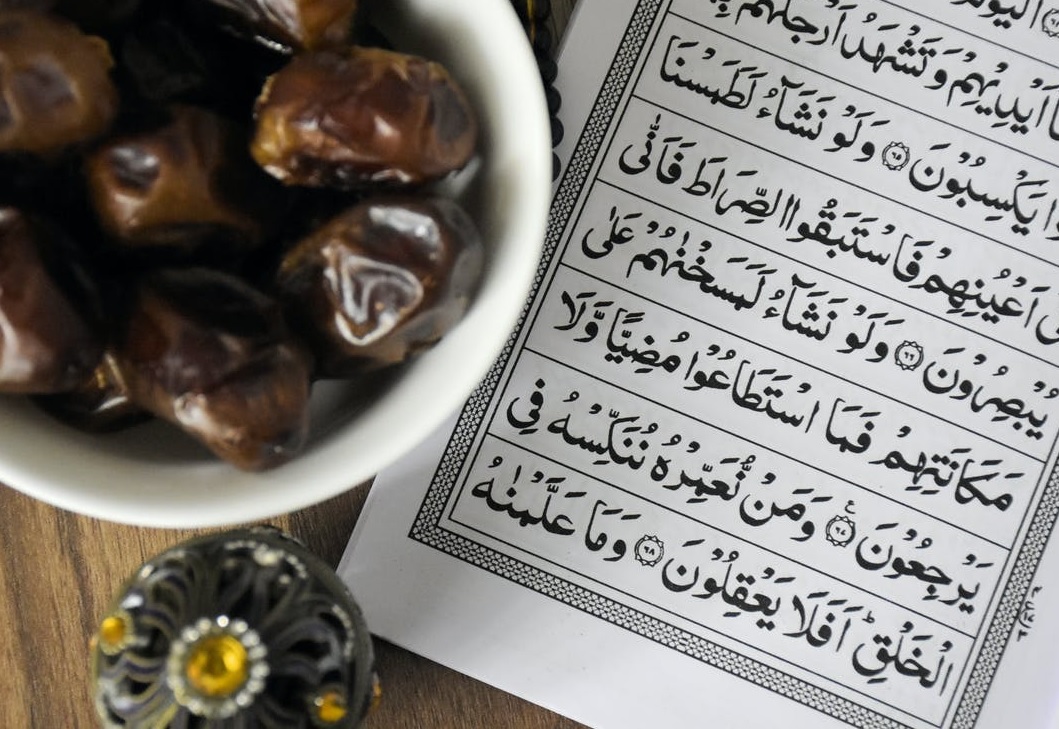 اَيْدِيْهِمْ وَتَشْهَدُ اَرْجُلُهُمْ
يَكْسِبُوْنَ ۝٦٥ وَلَوْ نَشَآءُ لَطَمَسْنَا
اَعْيُنِهِمْ فَاسْتَبَقُوا الصِّرَاطَ فَاَنّٰى
يُبْصِرُوْنَ ۝٦٦ وَلَوْ نَشَآءُ لَمَسَخْنٰهُمْ عَلٰى
مَكَانَتِهِمْ فَمَا اسْتَطَاعُوْا مُضِيًّا وَّلَا
يَرْجِعُوْنَ ۝٦٧ ع وَمَنْ نُّعَمِّرْهُ نُنَكِّسْهُ فِى
الْخَلْقِ ؕ اَفَلَا يَعْقِلُوْنَ ۝٦٨ وَمَا عَلَّمْنٰهُ